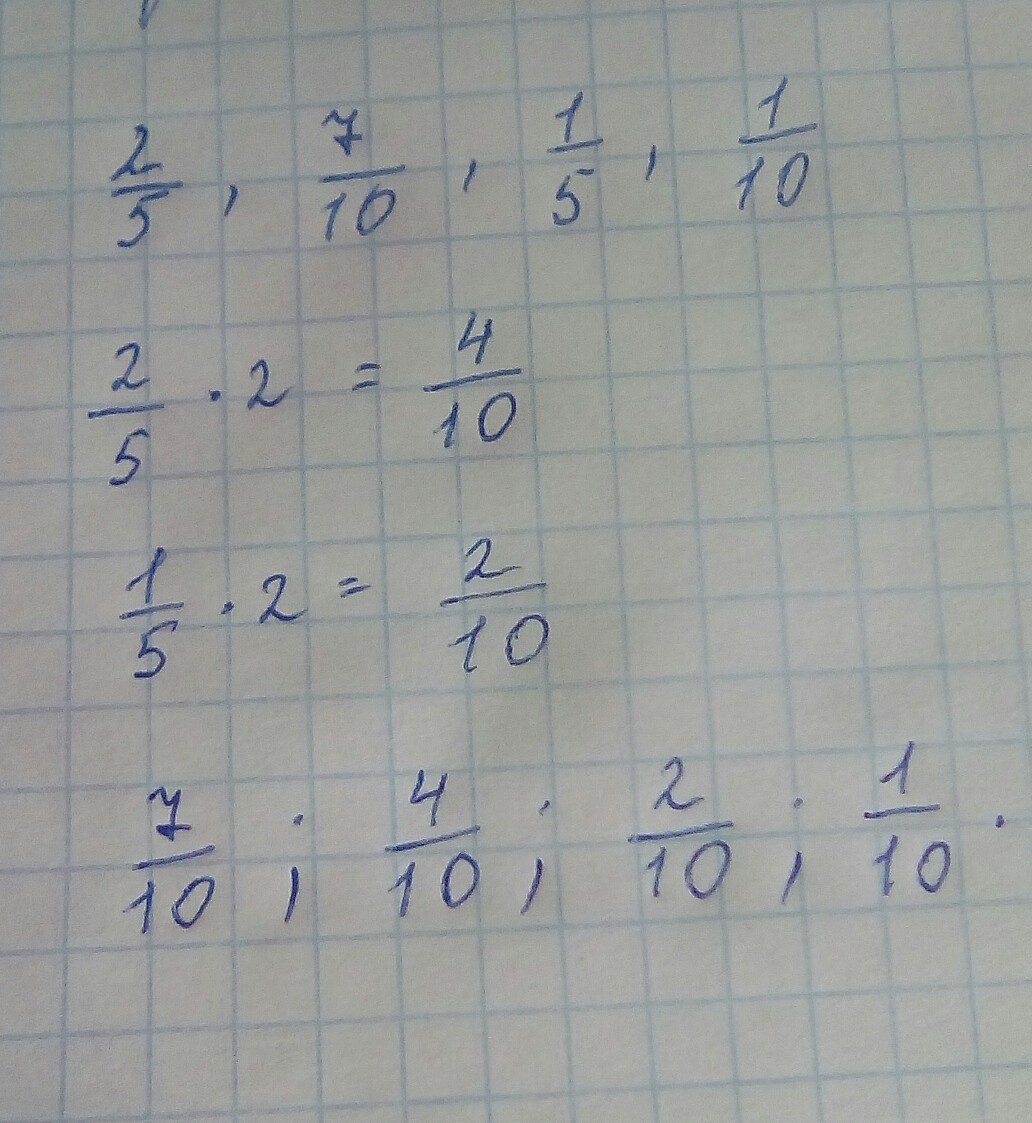 2/5, 7/10, 1/5, 1/10
2/5 · 2 = 4/10
1/5 · 2 = 2/10
7/10; 4/10; 2/10; 1/10.